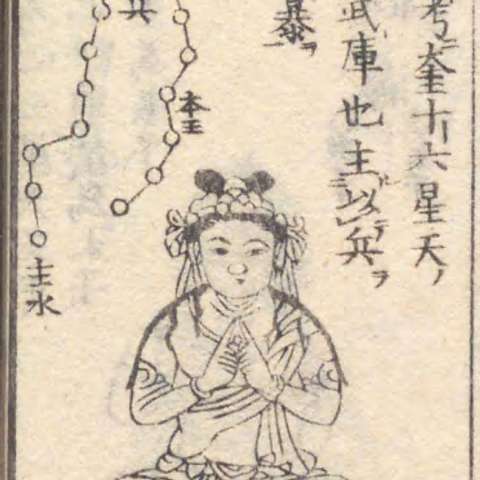 考奎十六星天ノ
武庫也主以兵ヲ
暴ヲ
兵
奎
主水